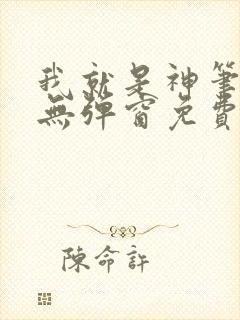 我就是神筆
無彈窗免費
陳命許